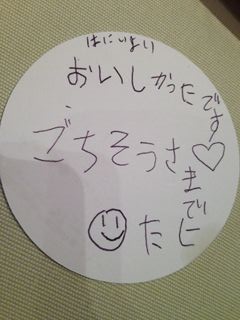 はにいよい
おいしかったです
ごちそうさ♡までした